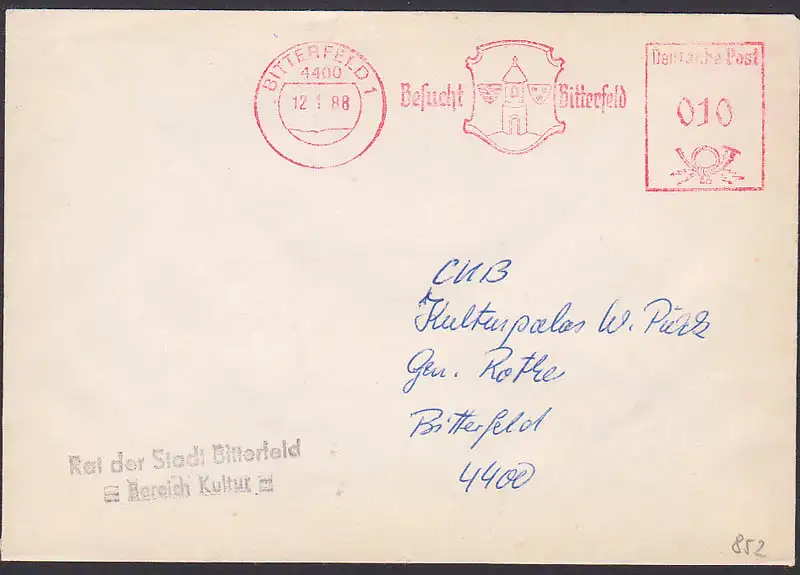 BITTERFELD 1
4400
12 1 88
Besucht Bitterfeld
Deutsche Post
010
CKB
Kulturpalas W. Pieck
Gen. Rothe
Bitterfeld
4400
Rat der Stadt Bitterfeld
Bereich Kultur
852